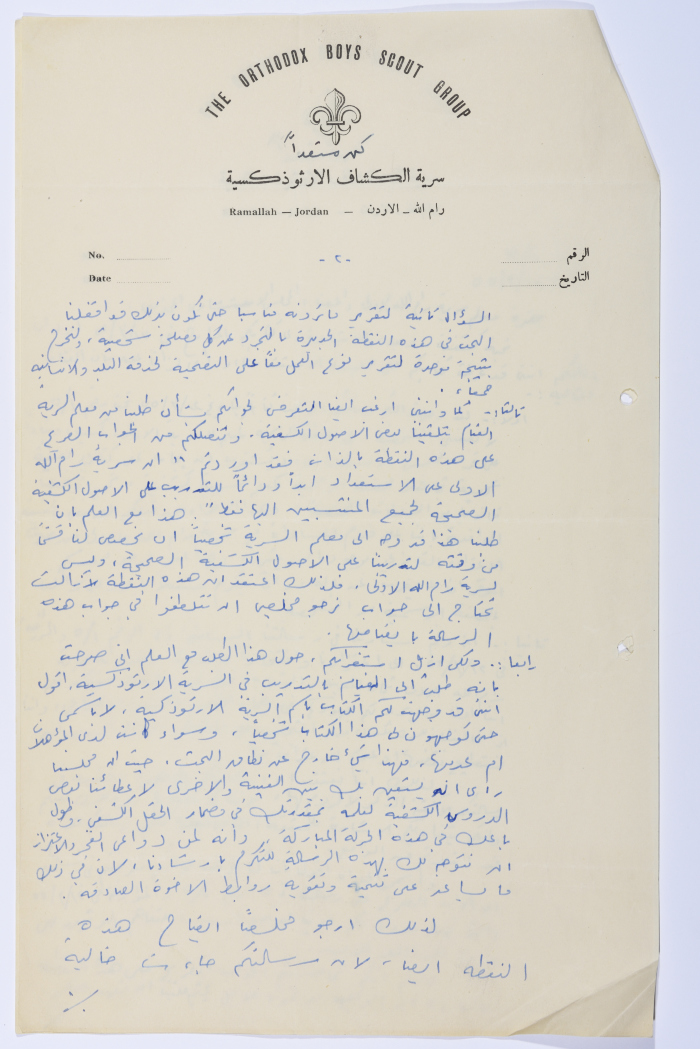 THE ORTHODOX BOYS SCOUT GROUP
كن مستعداً
سرية الكشاف الارثوذكسية
Ramallah — Jordan — رام الله ـ الاردن
No. الرقم
- ٢ -
Date التاريخ
السؤال ثانية لتقرير ما ترونه مناسبا حتى نكون بذلك قد اقفلنا
البحث في هذه النقطة الجديرة بالتجرد عن كل مصلحة شخصية، ولنخرج
بنتيجة موحدة لتقرير نوع العمل معاً على التضحية لخدمة البلد والانسانية
جمعاء.
ثالثا:- كما وانني ارغب ايضا التعرض لجوابكم بشأن طلبنا من معلم السرية
القيام بتلقيننا بعض الاصول الكشفية. و من الجواب الصريح
على هذه النقطة بالذات فقد اورد تم " ان سرية رام الله
الاولى على الاستعداد ابداً ودائماً للتدريب على الاصول الكشفية
الصحيحة لجميع المنتسبين اليها فقط". هذا مع العلم بان
طلبنا هذا قد وجه الى معلم السرية شخصياً ان يخصص لنا قسماً
من وقته لتدريبنا على الاصول الكشفية الصحيحة، وليس
لسرية رام الله الاولى. فلذلك اعتقد ان هذه النقطة لا زالت
تحتاج الى جواب نرجو مخلصين ان تتلطفوا في جواب هذه
الرسالة بايضاحها.
رابعا:- ولكي ازيل استغرابكم، حول هذا الطلب مع العلم اني صرحت
بانه طلب الي القيام بالتدريب في السرية الارثوذكسية، اقول
انني قد وجهت لكم الكتاب باسم السرية الارثوذكسية، لا باسمي
حتى توجهون لي هذا الكتاب شخصياً، وسواء كانت لدي المؤهلات
ام عدمها، فهذا شيء خارج عن نطاق البحث. حيث ان مجلسنا
رأى انه يستعين بك بين الفينة والاخرى لاعطائنا بعض
الدروس الكشفية لمقدرتك في مضمار الحقل الكشفي، وطول
باعك في هذه الحركة المباركة، وأنه لمن دواعي الفخر والاعتزاز
ان نتوجه لك بهذه الرسالة للتكرم بارشادنا، لان في ذلك
ما يساعد على تنمية وتقوية روابط الاخوة الصادقة.
لذلك ارجو مخلصاً ايضاح هذه
النقطة ايضا، لان رسالتكم جاءت خالية